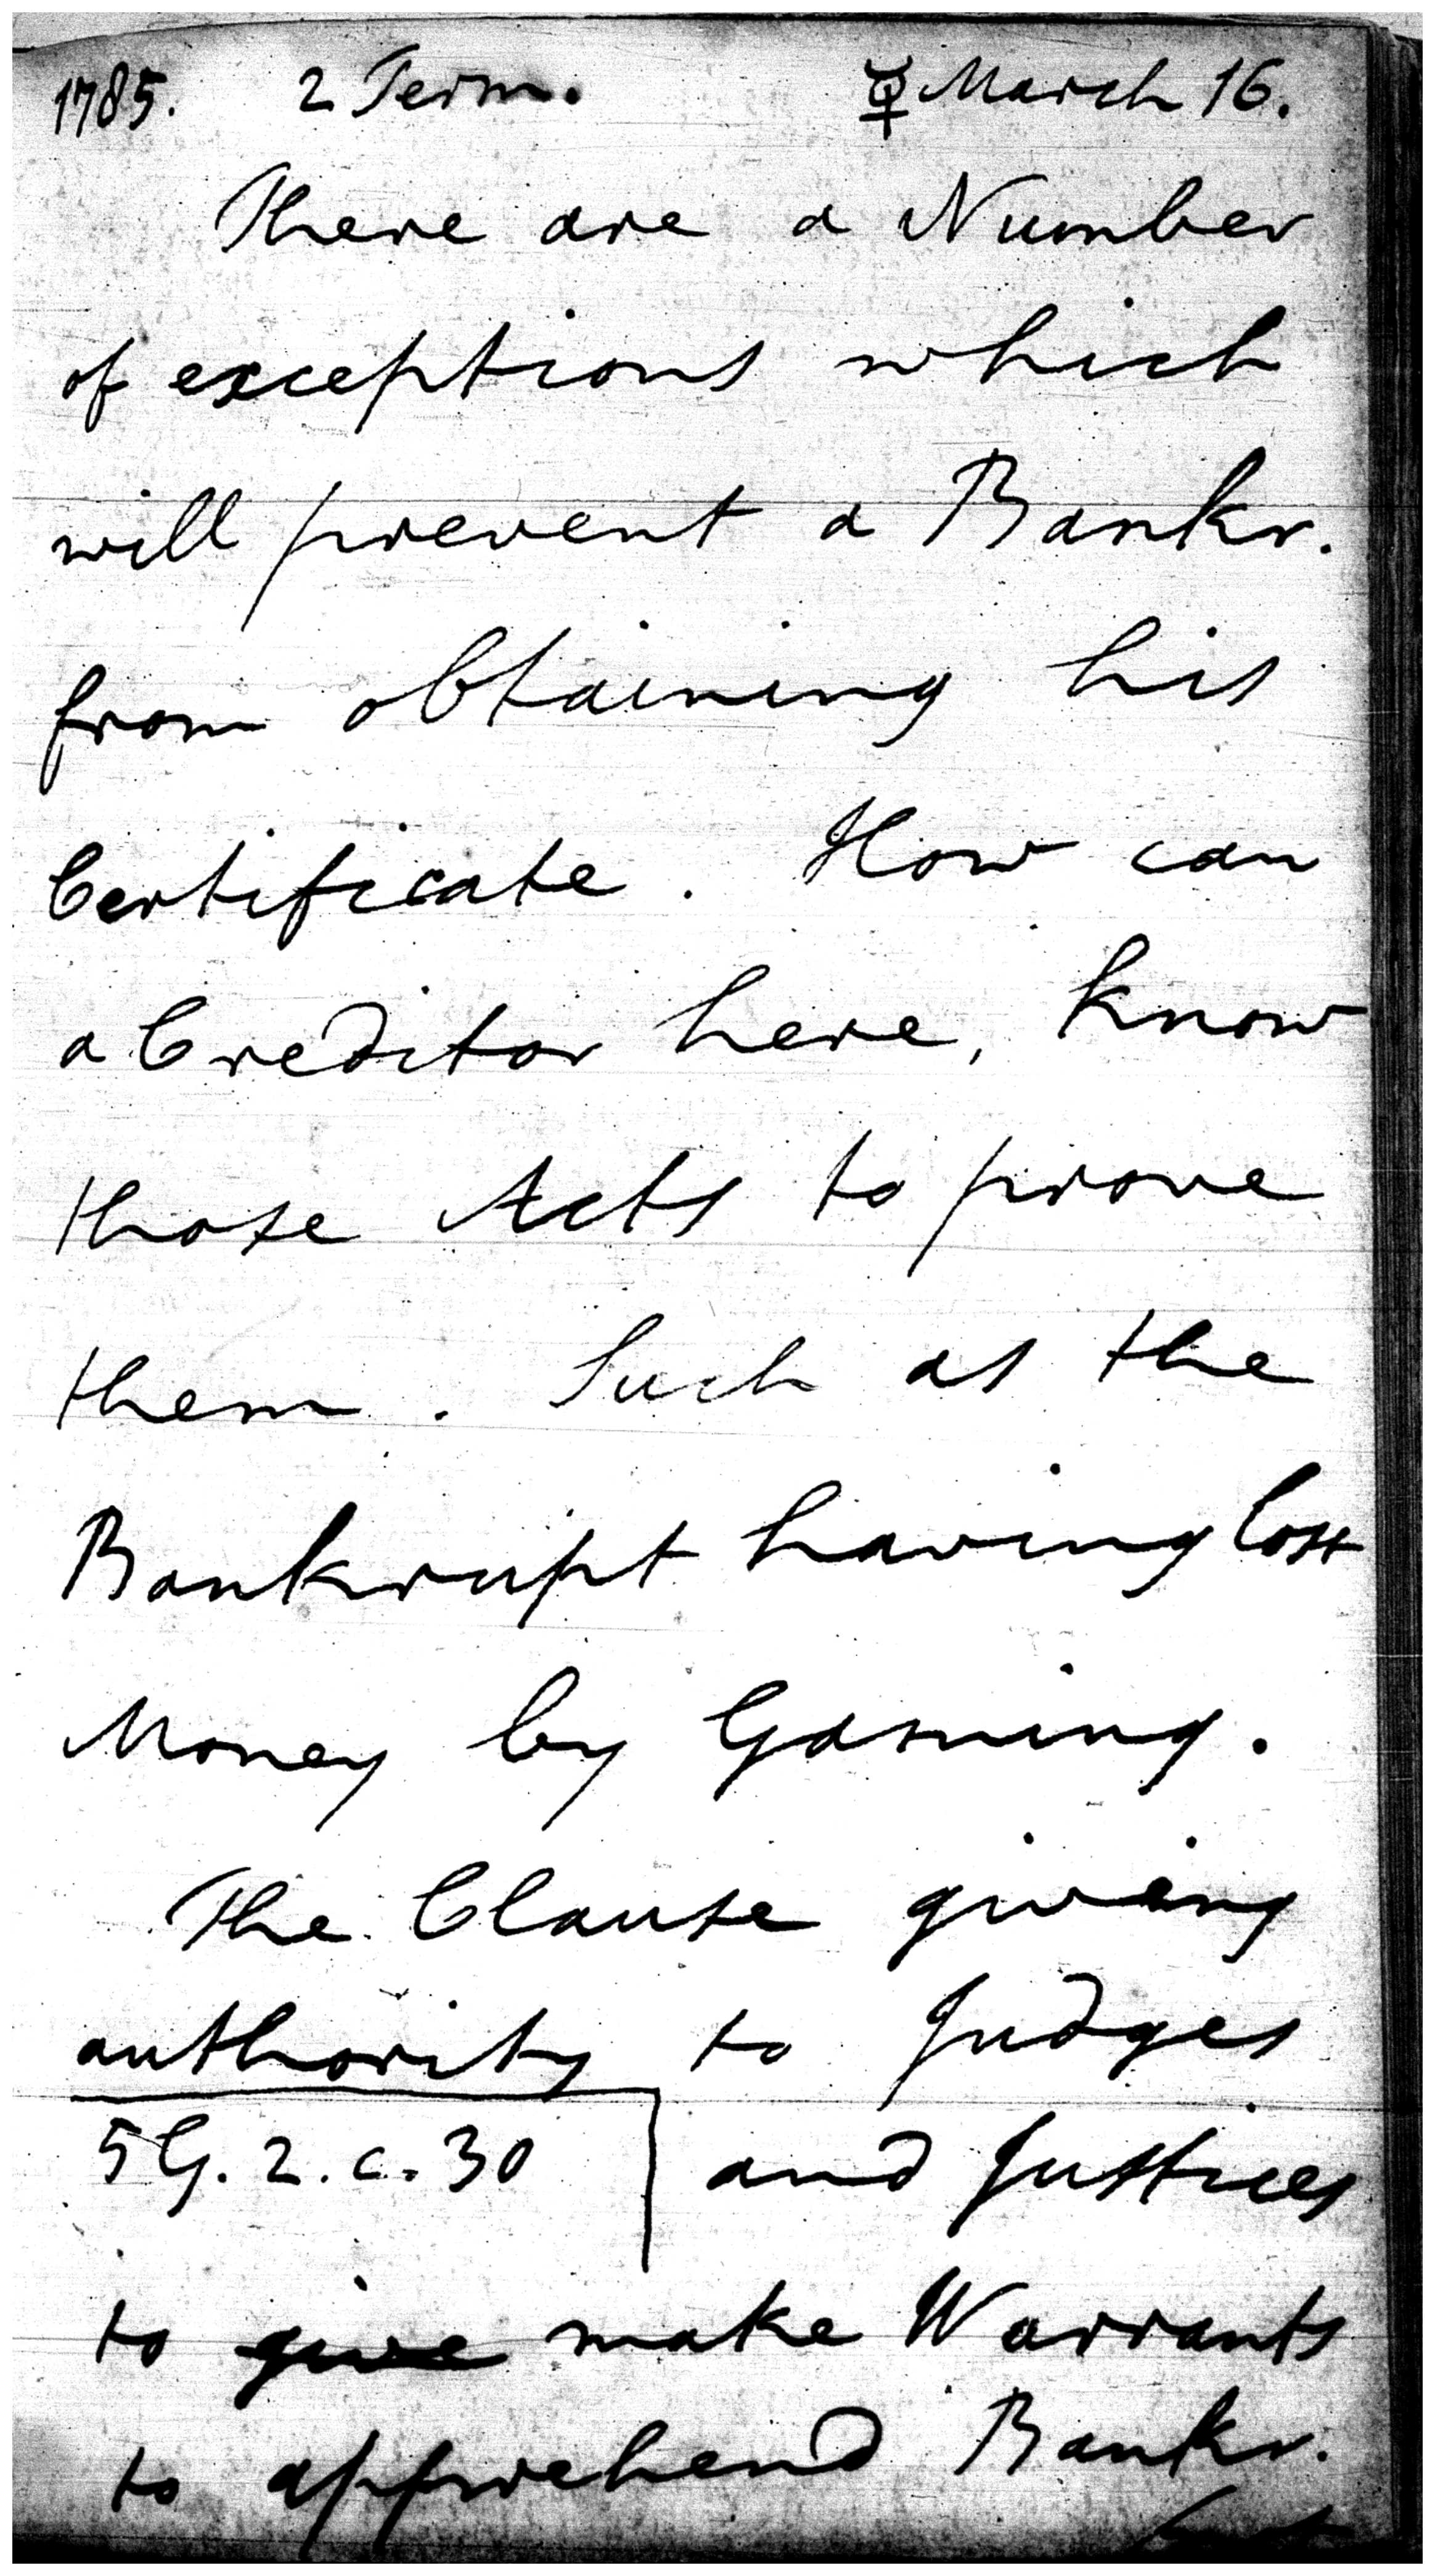 1785. 2 Term. ☿ March 16.
There are a Number
of exceptions which
will prevent a Bankr.
from obtaining his
Certificate. How can
a Creditor here, know
those Acts to prove
them. Such as the
Bankrupt having lost
Money by Gaming.
The Clause giving
authority to Judges
5 G. 2. c. 30 and Justices
to give make Warrants
to apprehend Bankr.